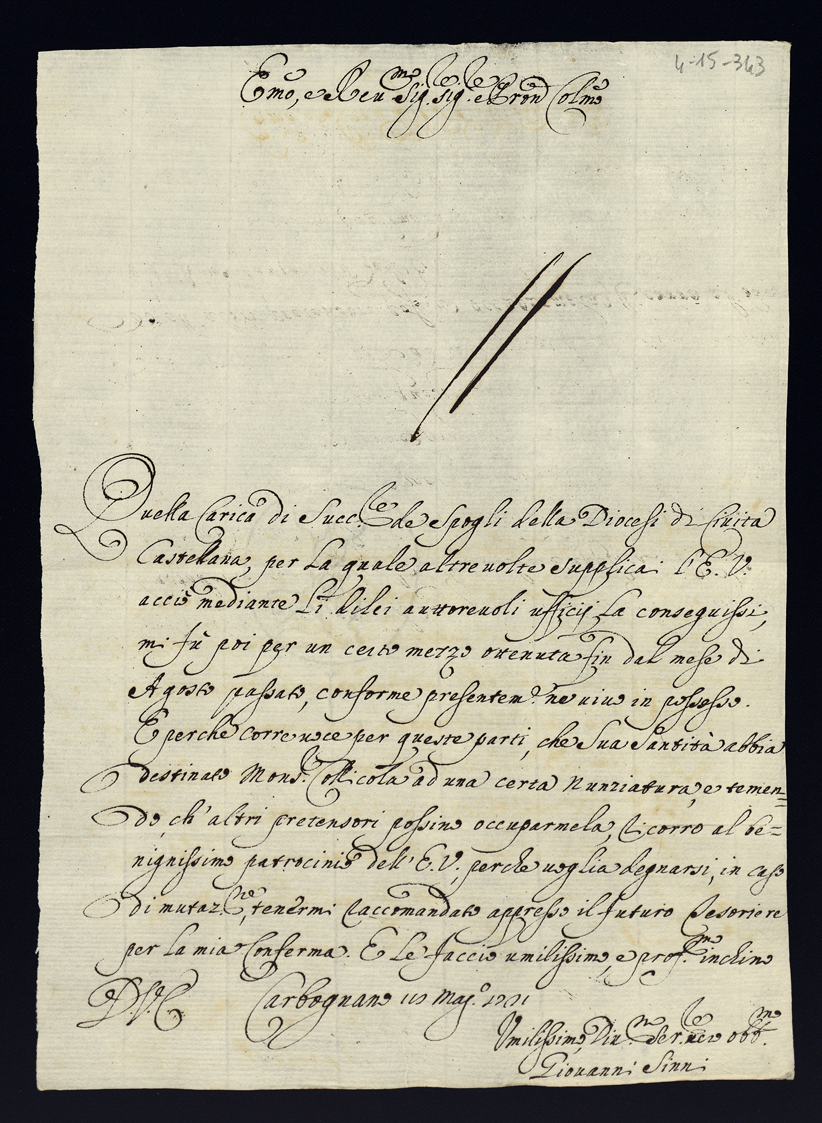 4-15-343
Emo, e Reumo Sig. Sig.re e Pron Colmo
Quella Carica di Succ.le de Spogli della Diocesi di Ciuita
Castellana, per la quale altre volte supplicai l'E. V.
acciò mediante li di lei auttoreuoli ufficij la conseguissi,
mi fù poi per un certo mezzo ottenuta fin dal mese di
Agosto passato, conforme presentem.e ne uiuo in possesso.
E perche corre uoce per queste parti, che Sua Santità abbia
destinato Mons.r Collicola ad una certa Nunziatura, e temen=
do, ch'altri pretensori possino occuparmela, Ricorro al be=
nignissimo patrocinio dell'E. V., perche uoglia degnarsi, in caso
di mutaz.ne, tenermi Raccomandato appresso il futuro Tesoriere
per la mia Conferma. E le faccio umilissimo, e prof.mo inchino
D. V. E. Carbognano Mag.o 1721
Umilissimo, Diu.mo Ser.re uero obb.mo
Giovanni Sinni